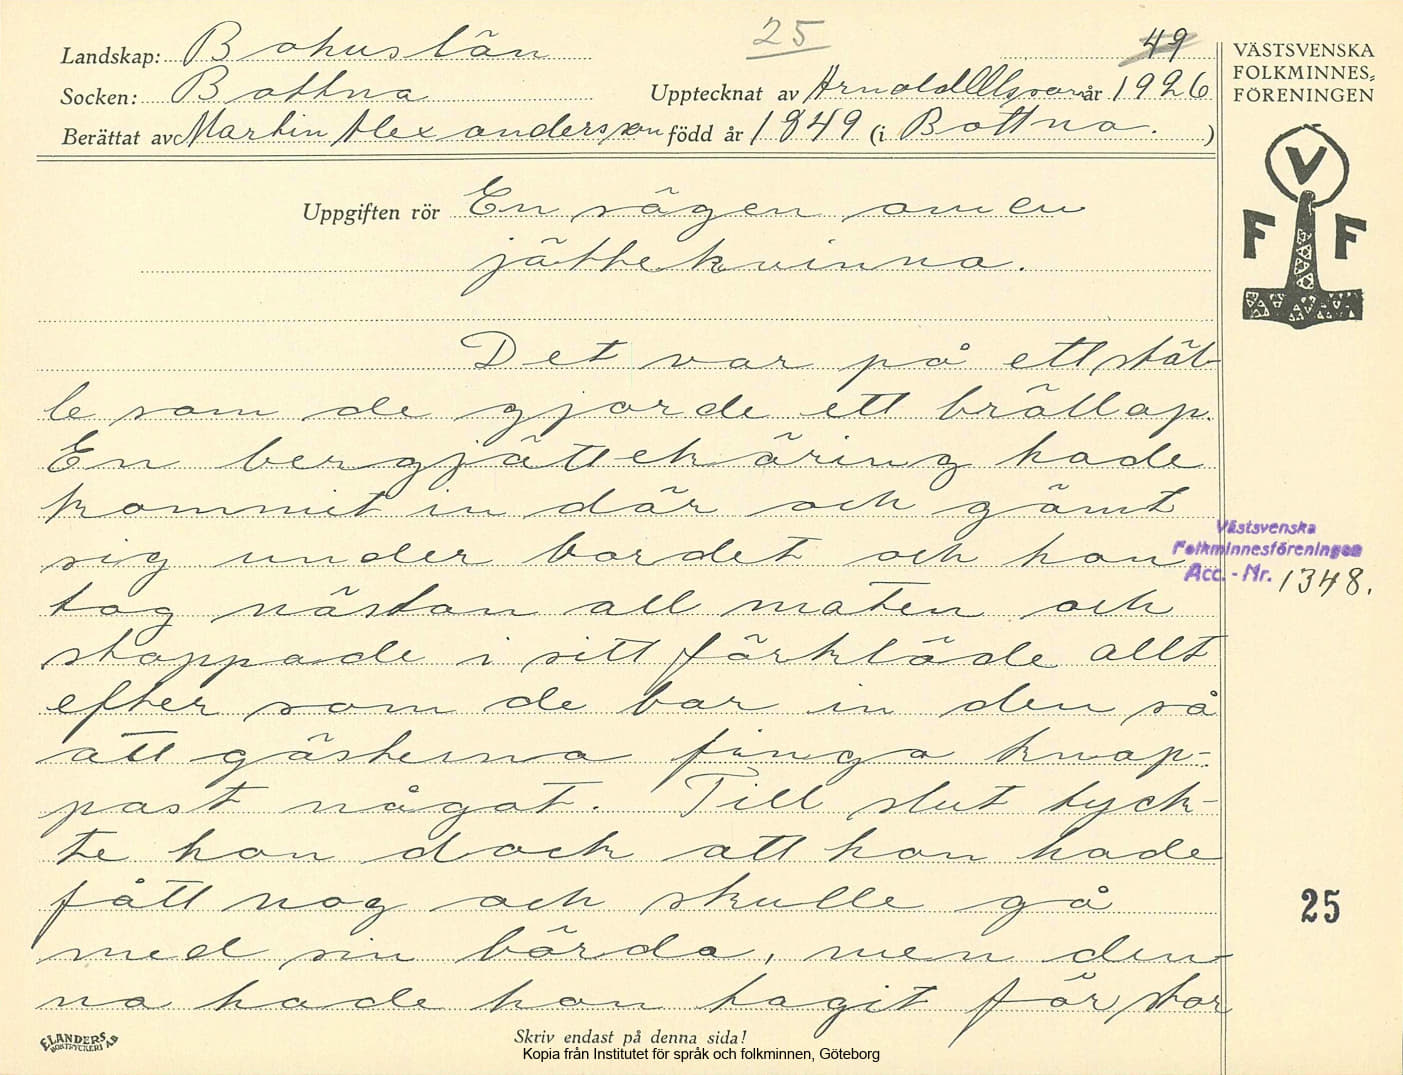 25
49
Landskap: Bohuslän
Socken: Bottna
Upptecknat av Arnold Olsson år 1926
Berättat av Martin Alexandersson född år 1849 (i Bottna. )
VÄSTSVENSKA
FOLKMINNES-
FÖRENINGEN
V
F F
Uppgiften rör En sägen om en
jättekvinna.
Det var på ett stäl-
le som de gjorde ett bröllop.
En bergjättekäring hade
kommit in där och gömt
sig under bordet och hon
tog nästan all maten och
stoppade i sitt förkläde allt
efter som de bar in den så
att gästerna finga knap-
past något. Till slut tyck-
te hon dock att hon hade
fått nog och skulle gå
med sin börda, men den-
na hade hon tagit för stor
Västsvenska
Folkminnesföreningen
Acc. - Nr. 1348.
25
ELANDERS
BOKTRYCKERI AB
Skriv endast på denna sida!
Kopia från Institutet för språk och folkminnen, Göteborg